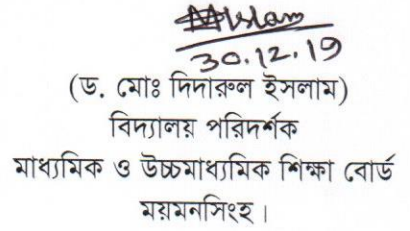 30.12.19
(ড. মোঃ দিদারুল ইসলাম)
বিদ্যালয় পরিদর্শক
মাধ্যমিক ও উচ্চমাধ্যমিক শিক্ষা বোর্ড
ময়মনসিংহ।